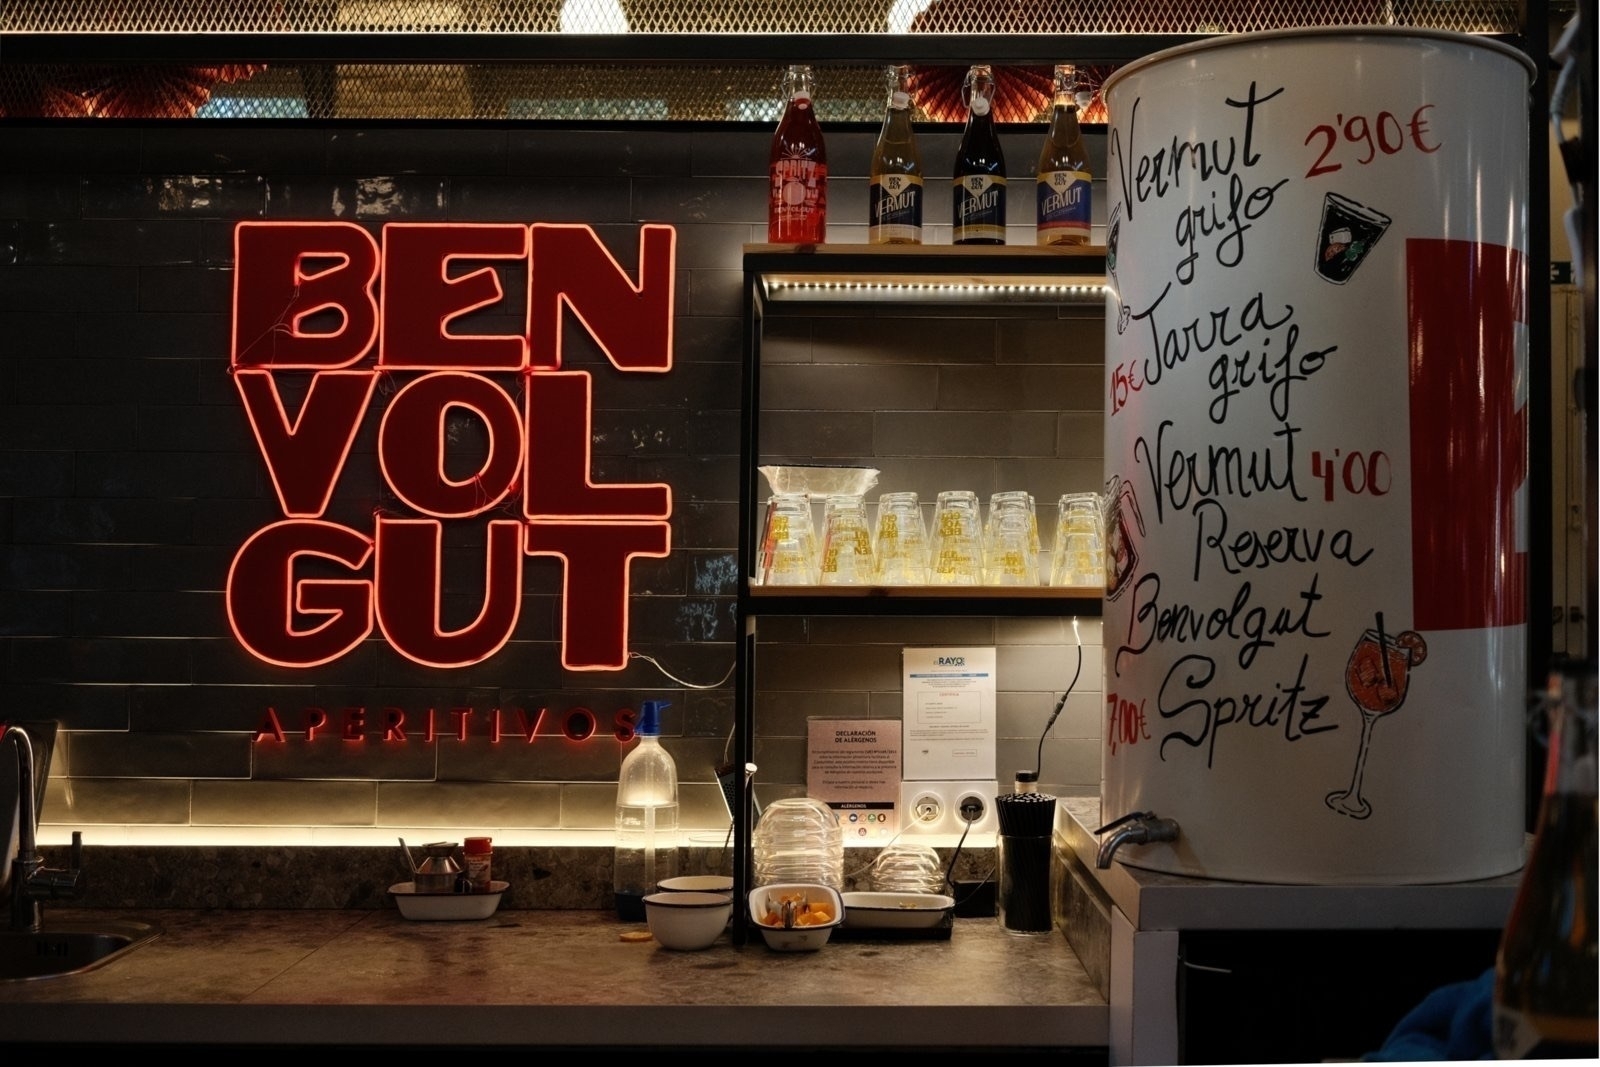 BEN
VOL
GUT
APERITIVOS
SPRITZ
BENVOLGUT
BEN
GUT
VERMUT
BEN
GUT
VERMUT
BEN
GUT
VERMUT
Vermut 2'90€
grifo
15€ Jarra
grifo
Vermut 4'00
Reserva
Benvolgut
7,00€ Spritz
RAYO
DECLARACIÓN
DE ALÉRGENOS
ALÉRGENOS